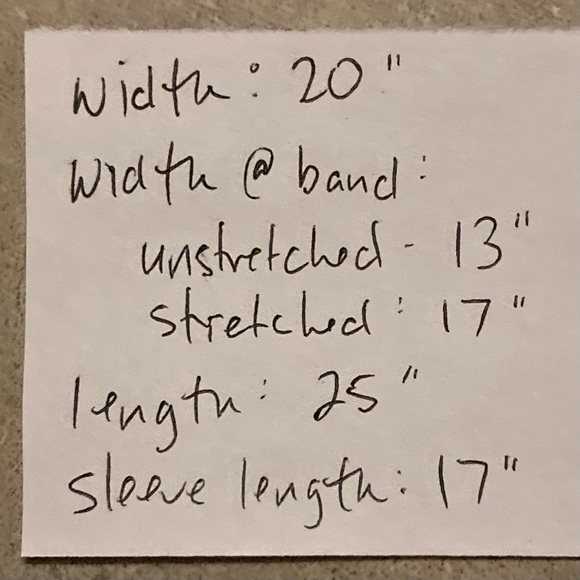 width: 20"
width @ band:
unstretched - 13"
stretched: 17"
length: 25"
sleeve length: 17"